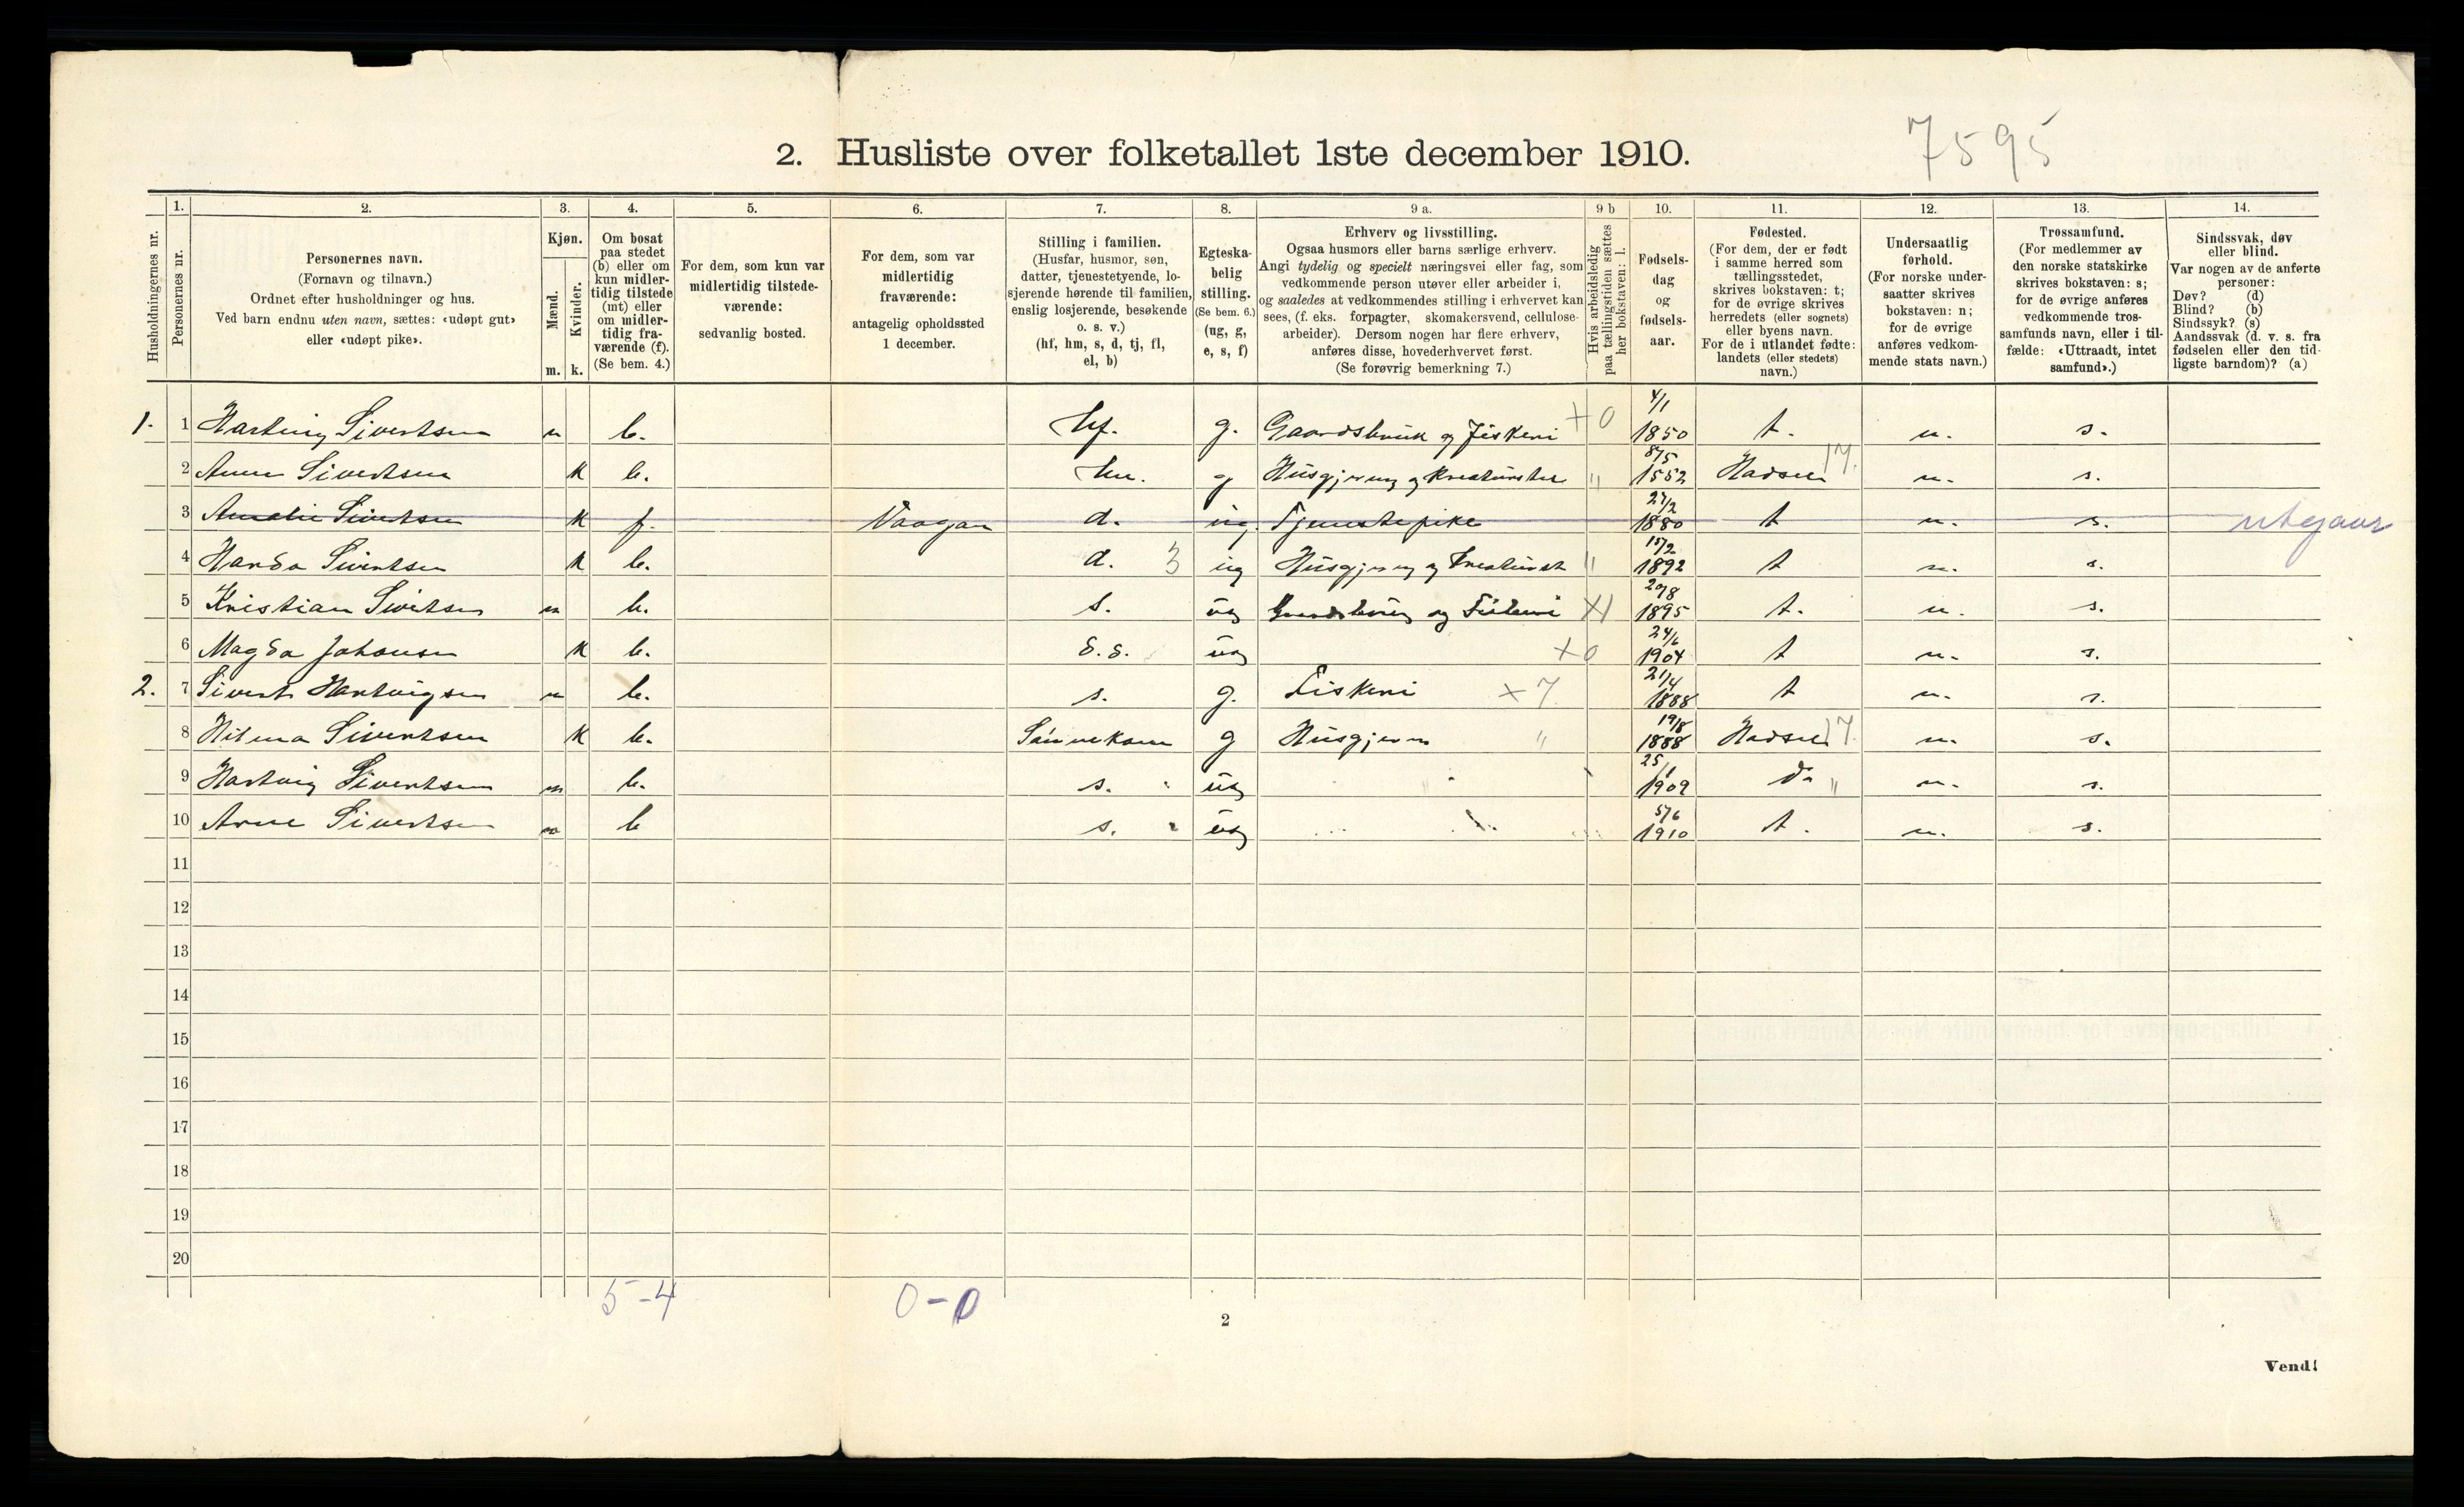 7595
2. Husliste over folketallet 1ste december 1910.
Husholdningernes nr.
1.
Personernes nr.
2.
Personernes navn.
(Fornavn og tilnavn.)
Ordnet efter husholdninger og hus.
Ved barn endnu uten navn, sættes: «udøpt gut»
eller «udøpt pike».
3.
Kjøn.
Mænd.
Kvinder.
m. k.
4.
Om bosat
paa stedet
(b) eller om
kun midler-
tidig tilstede
(mt) eller
om midler-
tidig fra-
værende (f).
(Se bem. 4.)
5.
For dem, som kun var
midlertidig tilstede-
værende:
sedvanlig bosted.
6.
For dem, som var
midlertidig
fraværende:
antagelig opholdssted
1 december.
7.
Stilling i familien.
(Husfar, husmor, søn,
datter, tjenestetyende, lo-
sjerende hørende til familien,
enslig losjerende, besøkende
o. s. v.)
(hf, hm, s, d, tj, fl,
el, b)
8.
Egteska-
belig
stilling.
(Se bem. 6.)
(ug, g,
e, s, f)
9 a.
Erhverv og livsstilling.
Ogsaa husmors eller barns særlige erhverv.
Angi tydelig og specielt næringsvei eller fag, som
vedkommende person utøver eller arbeider i,
og saaledes at vedkommendes stilling i erhvervet kan
sees, (f. eks. forpagter, skomakersvend, cellulose-
arbeider). Dersom nogen har flere erhverv,
anføres disse, hovederhvervet først.
(Se forøvrig bemerkning 7.)
9 b
Hvis arbeidsledig
paa tællingstiden sættes
her bokstaven: l.
10.
Fødsels-
dag
og
fødsels-
aar.
11.
Fødested.
(For dem, der er født
i samme herred som
tællingsstedet,
skrives bokstaven: t;
for de øvrige skrives
herredets (eller sognets)
eller byens navn.
For de i utlandet fødte:
landets (eller stedets)
navn.)
12.
Undersaatlig
forhold.
(For norske under-
saatter skrives
bokstaven: n;
for de øvrige
anføres vedkom-
mende stats navn.)
13.
Trossamfund.
(For medlemmer av
den norske statskirke
skrives bokstaven: s;
for de øvrige anføres
vedkommende tros-
samfunds navn, eller i til-
fælde: «Uttraadt, intet
samfund».)
14.
Sindssvak, døv
eller blind.
Var nogen av de anførte
personer:
Døv? (d)
Blind? (b)
Sindssyk? (s)
Aandssvak (d. v. s. fra
fødselen eller den tid-
ligste barndom)? (a)
1. 1 Hartvig Sivertsen m b. hf. g. Gaardsbruk og Fiskeri + 0 4/1 1850 t. n. s.
2 Anne Sivertsen k b. hm. g Husgjerning og " 8/5 1852 Hadsel 17. n. s.
3 Amalie Sivertsen k f. Vaagan d. ug. Tjenestepike 27/2 1880 t n. s. utgaar
4 Sivertsen k b. d. 3 ug Husgjerning og " 15/2 1892 t n. s.
5 Kristian m b. s. ug Gaardsbrug og Fiskeri X1 20/8 1895 t. n. s.
6 Magda Johansen k b. ug + 0 24/6 1904 t n. s.
2. 7 Sivert Hartvigsen m b. s. g. Fiskeri x 7. 21/4 1888 t n. s.
8 Hilma Sivertsen k b. g Husgjern " 19/8 1888 Hadsel 17. n. s.
9 Hartvig Sivertsen m b. s. ug 25/1 1909 do " n. s.
10 Arne Sivertsen m b s. ug 5/6 1910 t. n. s.
11
12
13
14
15
16
17
18
19
20
5-4
0-0
2
Vend!